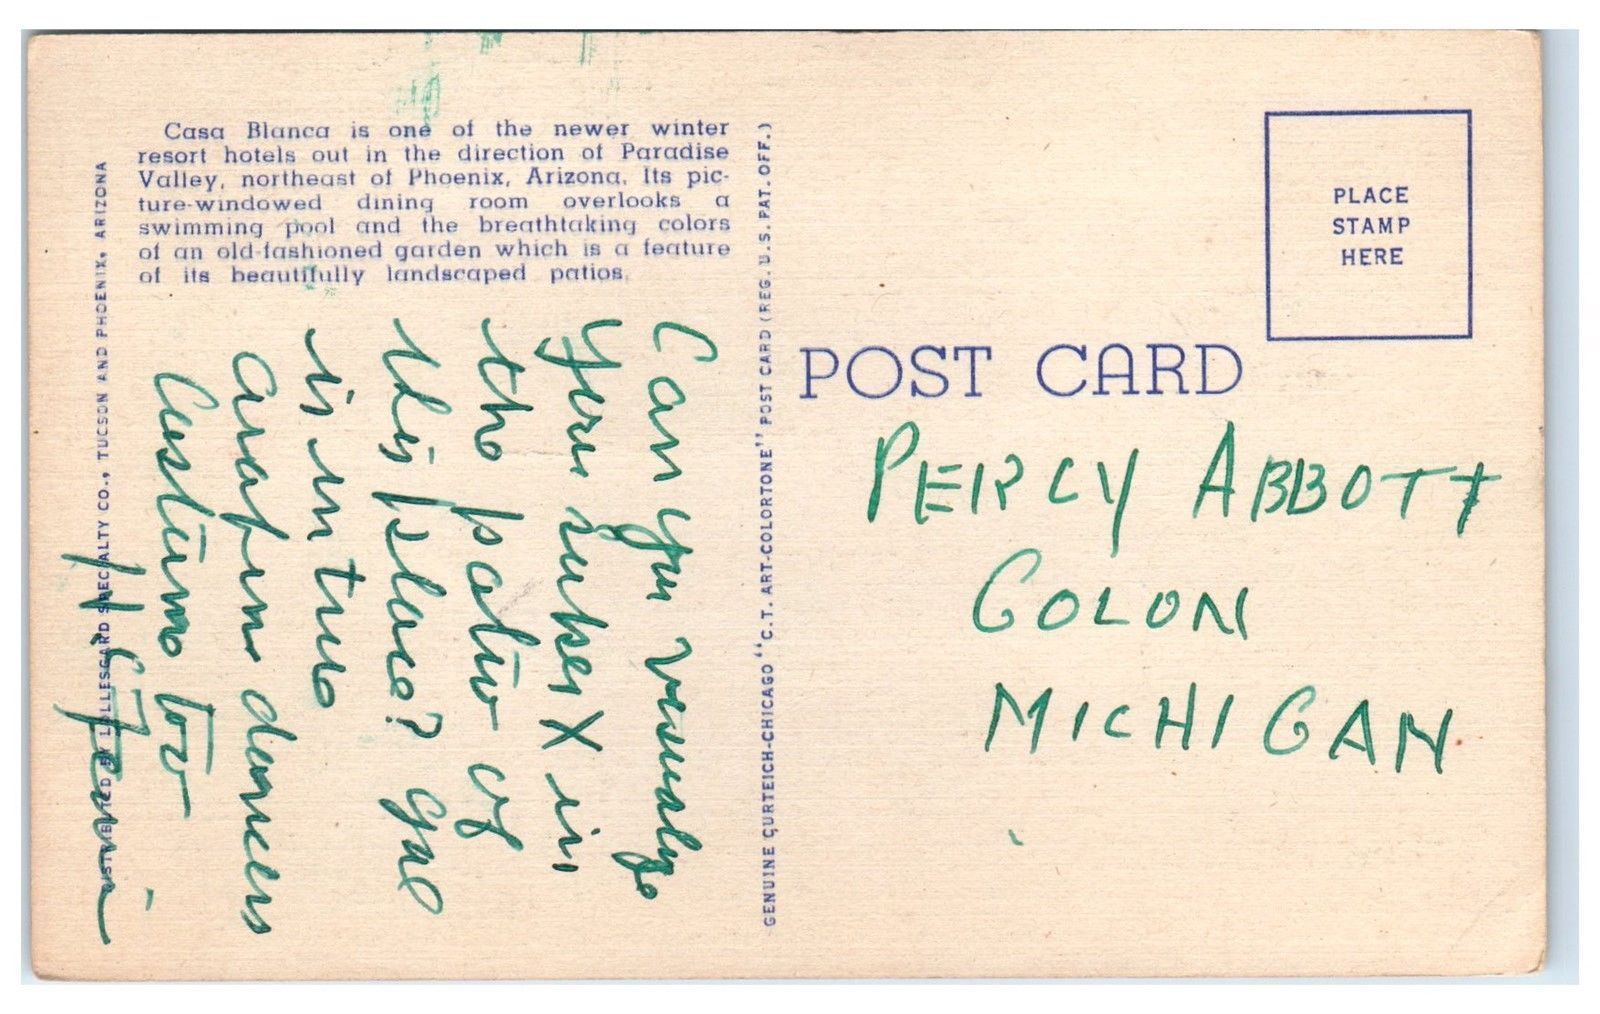 Casa Blanca is one of the newer winter
resort hotels out in the direction of Paradise
Valley, northeast of Phoenix, Arizona. Its pic-
ture-windowed dining room overlooks a
swimming pool and the breathtaking colors
of an old-fashioned garden which is a feature
of its beautifully landscaped patios.
Can you visualize
your super X in
the patio of
this place? gal
is in two
dancers
Costume too
DISTRIBUTED BY LOLLESGARD SPECIALTY CO., TUCSON AND PHOENIX, ARIZONA
GENUINE CURTEICH-CHICAGO "C.T. ART-COLORTONE" POST CARD (REG. U.S. PAT. OFF.)
PLACE
STAMP
HERE
POST CARD
PERCY ABBOTT
COLON
MICHIGAN